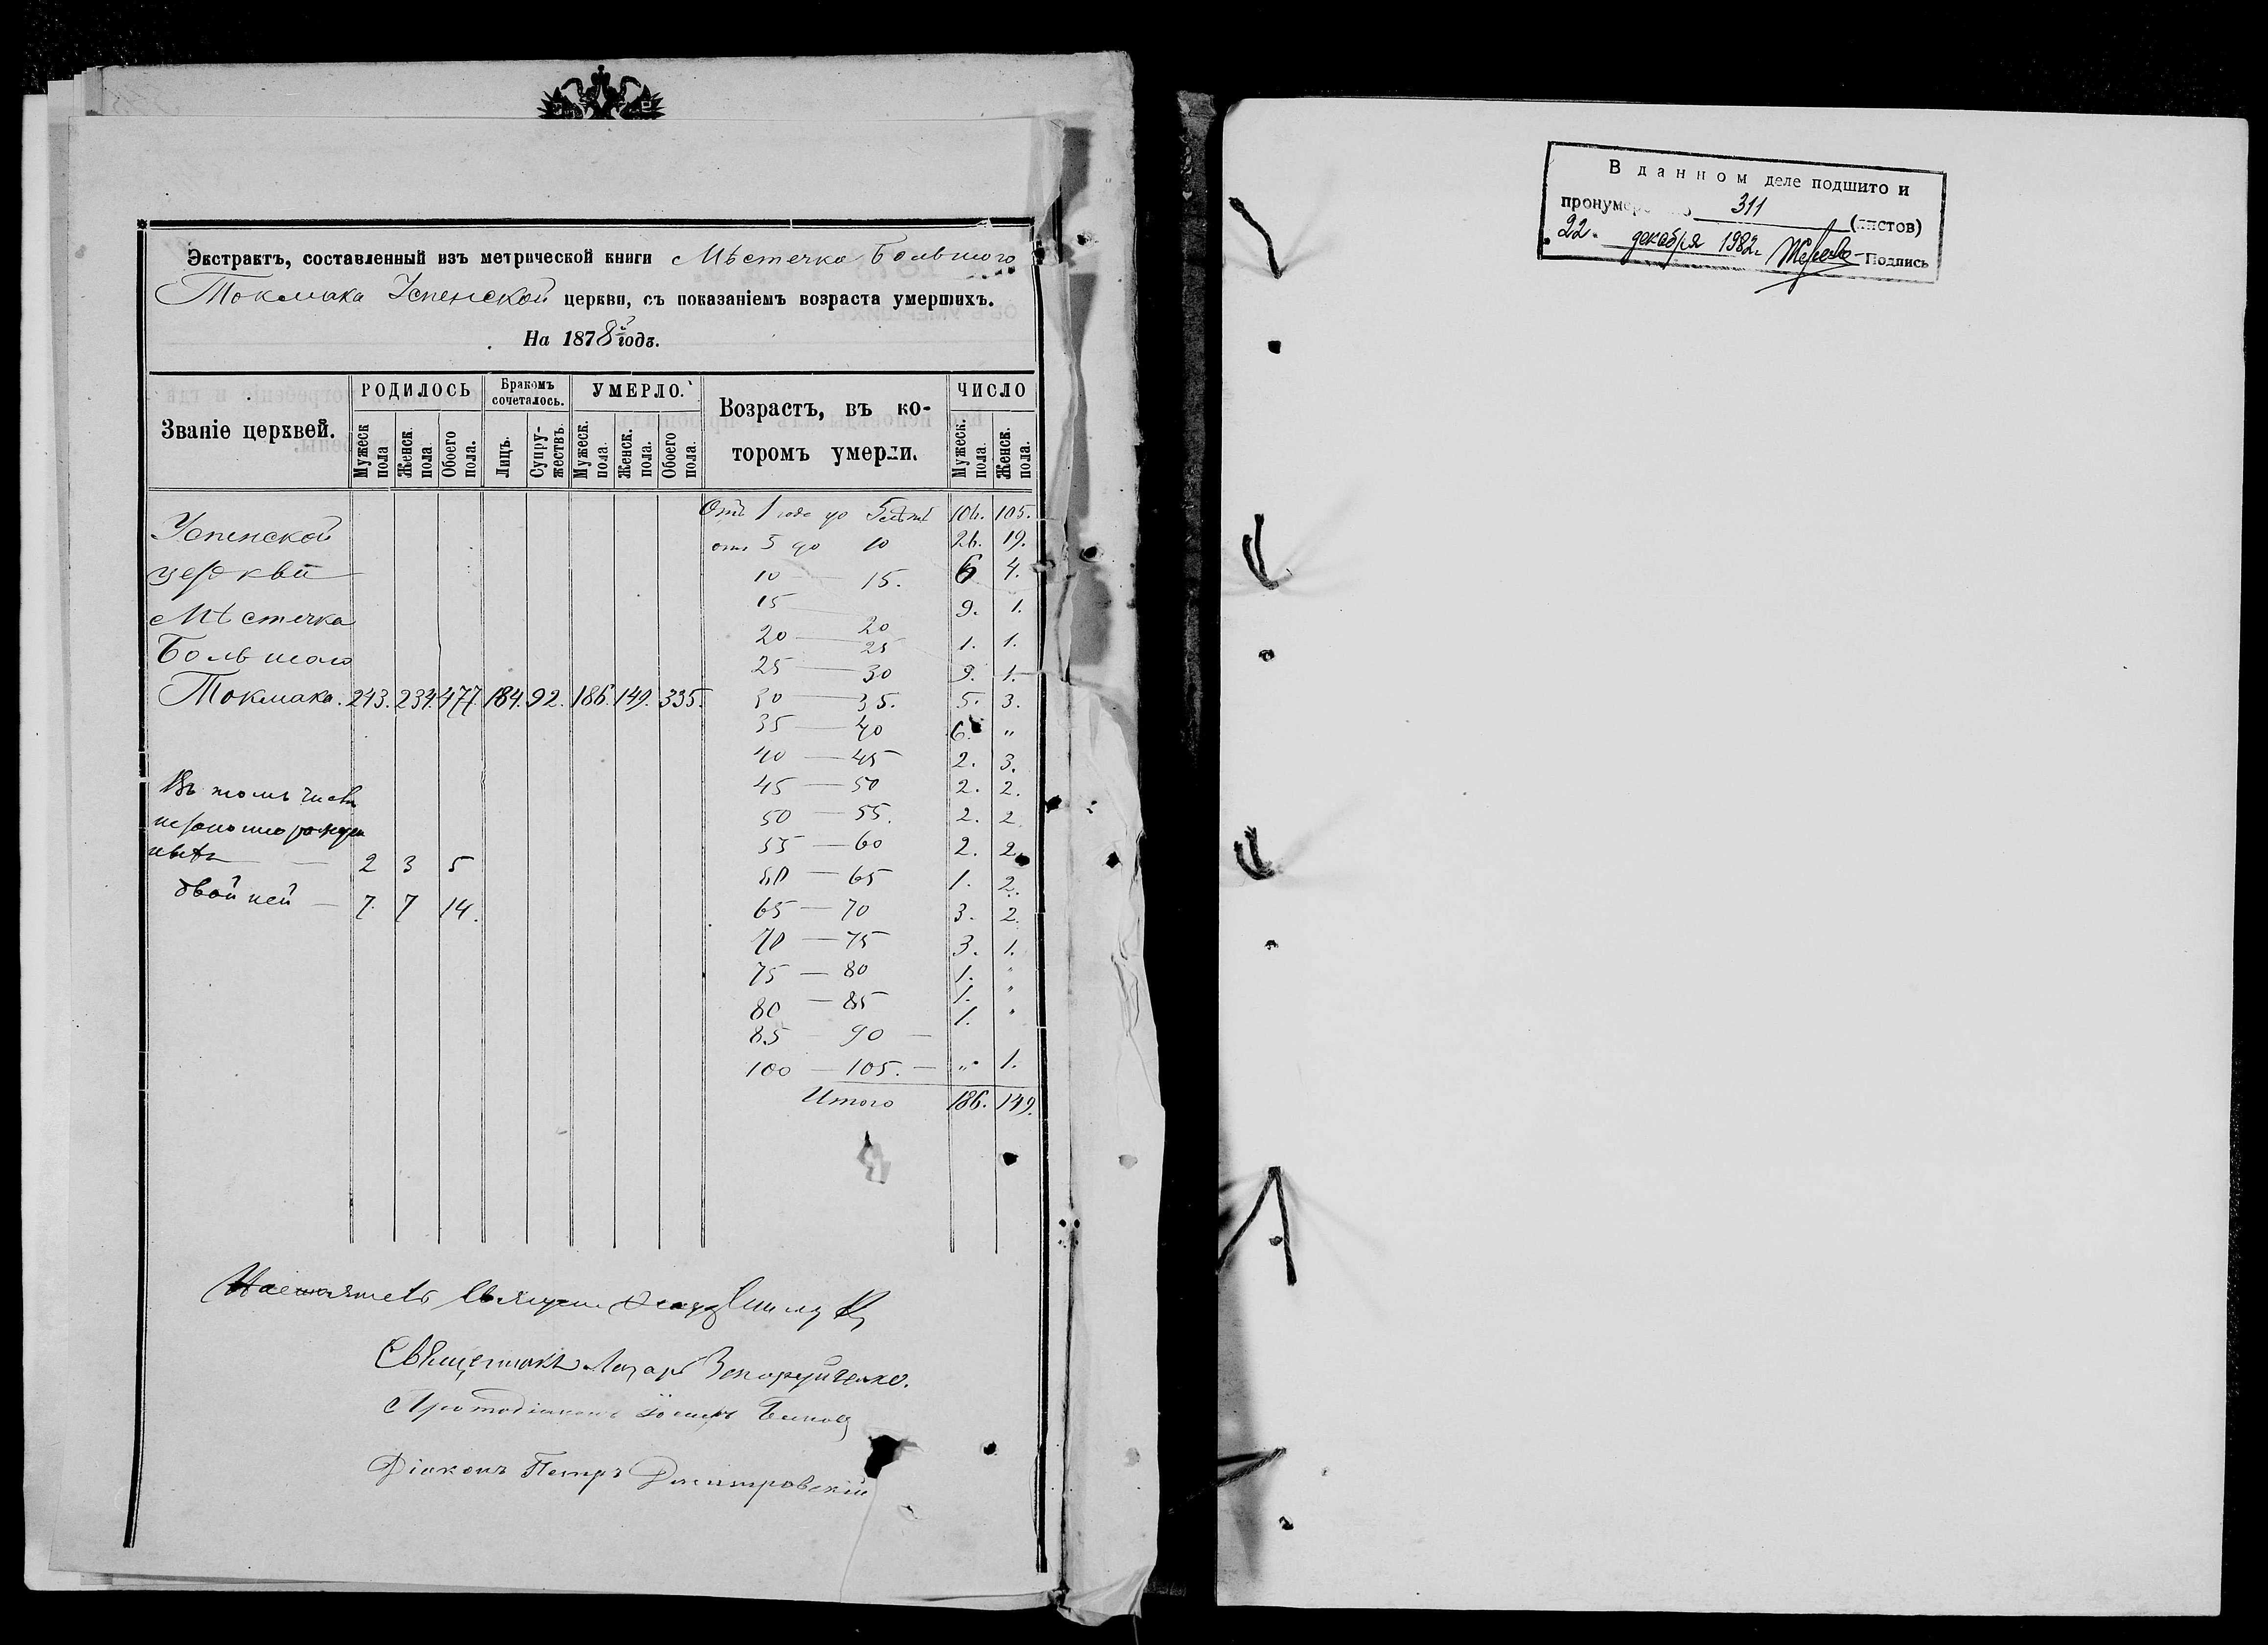 Экстрактъ, составленный изъ метрической книги Мѣстечка Большого
Токмака Успенской церкви, съ показаніемъ возраста умершихъ.
На 1878й годъ.
Званіе церквей.
РОДИЛОСЬ
Мужеск пола
Женск. пола.
Обоего пола.
Бракомъ сочеталось.
Лицъ.
Супружествъ.
УМЕРЛО.
Мужеск. пола.
Женск. пола.
Обоего пола.
Возрастъ, въ которомъ умерли.
ЧИСЛО
Мужеск. пола.
Женск. пола.
Успенской
церкви
Мѣстечка
Большого
Токмака. 243. 234. 477. 184. 92. 186. 149. 335.
Въ томъ числѣ
2 3 5
двойней — 7. 7 14.
Отъ 1 года до 5 лѣтъ 106. 105.
отъ 5 до 10 26. 19.
10 — 15. 6 4.
15 — 20 9. 1.
20 — 25 1. 1.
25 — 30 9. 1.
30 — 35. 5. 3.
35 — 40 6. "
40 — 45 2. 3.
45 — 50 2. 2.
50 — 55. 2. 2
55 — 60 2. 2.
60 — 65 1. 2.
65 — 70 3. 2.
70 — 75 3. 1.
75 — 80 1. "
80 — 85 1. "
85 — 90 — 1. "
100 — 105. — " 1.
Итого 186. 149.
Священникъ Лазарь
Протодіаконъ
Діаконъ Петръ Димитровскій
В данном деле подшито и
пронумеровано 311 (листов)
22. декабря 1982г. Подпись